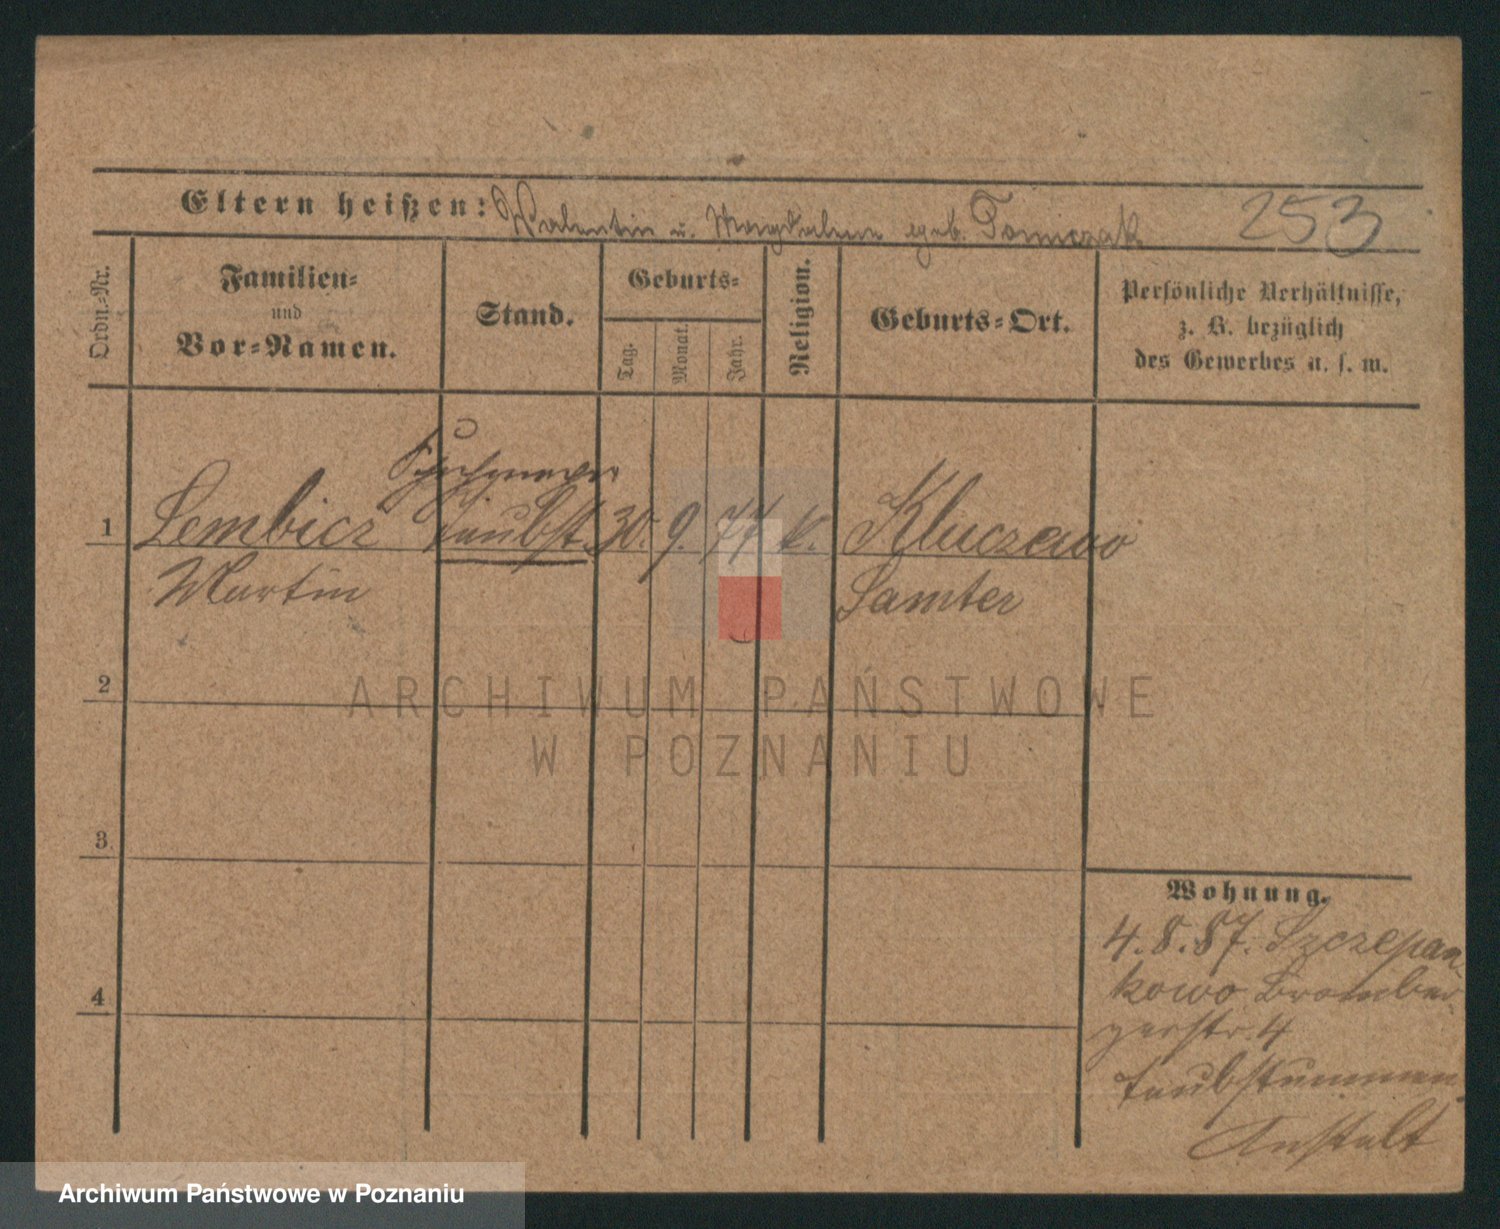 Eltern heißen: Valentin u. Magdalena geb. Tomczak 253
Ordn.-Nr.
Familien-
und
Vor-Namen.
Stand.
Geburts-
Tag.
Monat.
Jahr.
Religion.
Geburts-Ort.
Persönliche Verhältnisse,
z. B. bezüglich
des Gewerbes u. s. w.
Schuhmacher
1 Lembicz taubst. 30. 9. 77 k. Kluczewo
Martin Samter
2
3
4
Wohnung.
4.8.87. Szczepan-
kowo Bromber-
gerstr. 4
Taubstummen
Anstalt
ARCHIWUM PAŃSTWOWE
W POZNANIU
Archiwum Państwowe w Poznaniu